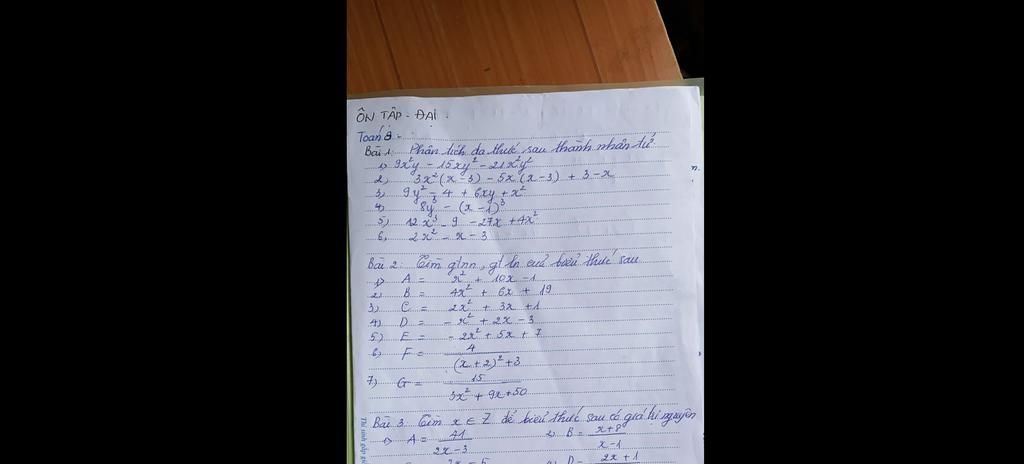 ÔN TẬP - ĐẠI.
Toán 8.
Bài 1. Phân tích đa thức sau thành nhân tử
1) 9x²y - 15xy² - 21x²y²
2) 3x²(x-3) - 5x(x-3) + 3-x
3) 9y² - 4 + 6xy + x²
4) 8y³ - (x-1)³
5) 12x³ - 9 - 27x + 4x²
6) 2x² - x - 3
Bài 2: Tìm gtnn, gtln của biểu thức sau
1) A = x² + 10x - 1
2) B = 4x² + 6x + 19
3) C = 2x² + 3x + 1
4) D = - x² + 2x - 3
5) E = - 2x² + 5x + 7
6) F = 4 / (x+2)² + 3
7) G = 15 / 3x² + 9x + 50
Bài 3. Tìm x ∈ Z để biểu thức sau có giá trị nguyên
1) A = 41 / 2x-3 2) B = x+8 / x-1
D = 2x+1